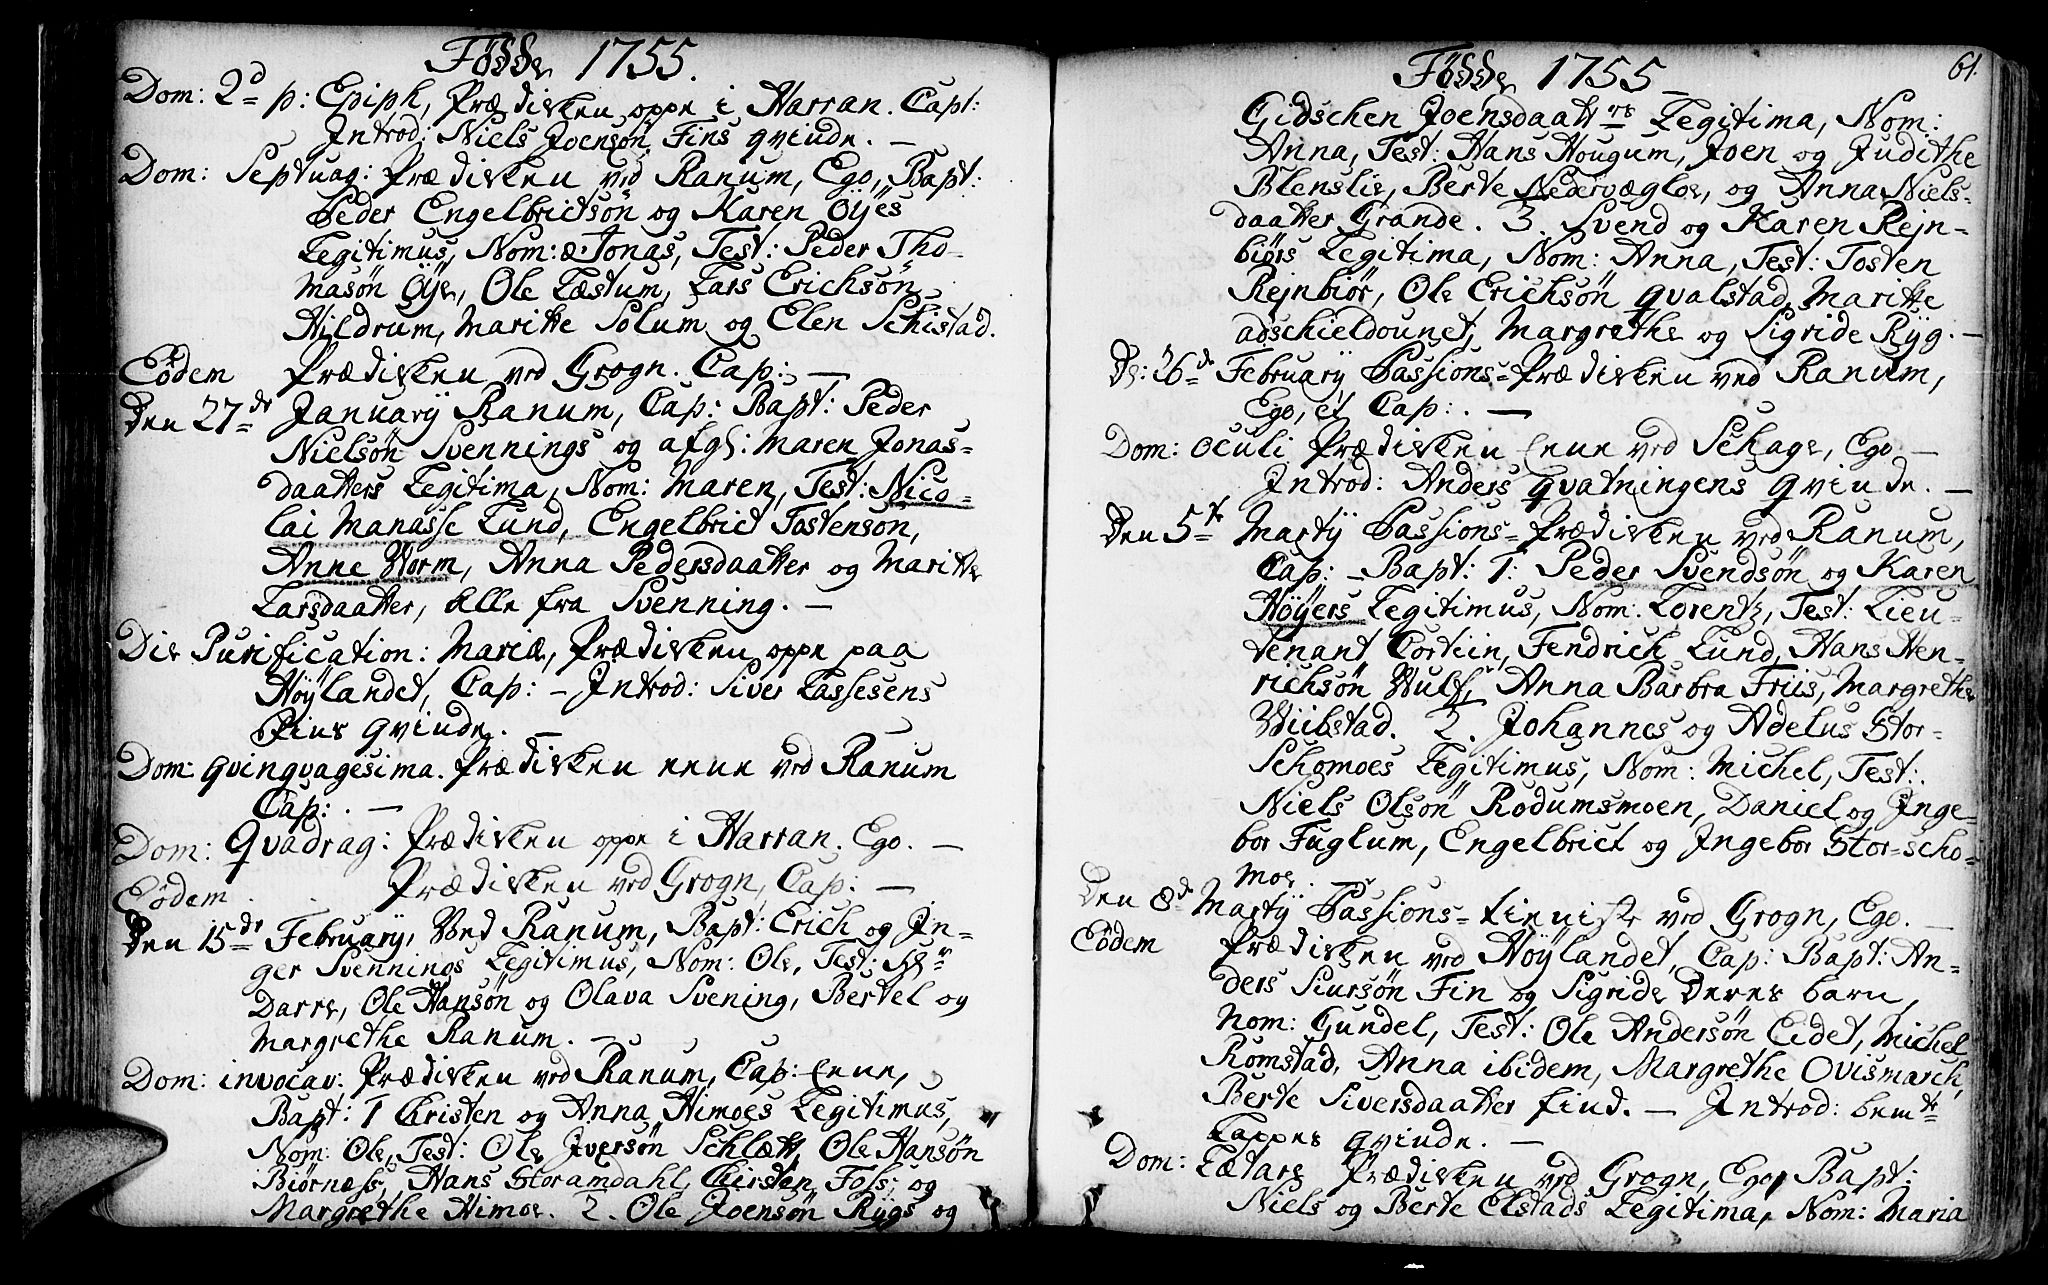 Födde 1755.
Dom: 2d p: Epiph, Prædicken oppe i Harran. Capt:
Introd: Niels Joensön Fins qvinde. —
Dom: Septuag: Prædicken ved Ranum, Ego, Bapt:
Peder Engelbrictsön og Karen Öÿes
Legitimus, Nom: Jonas, Test: Peder Tho-
masön Öÿe, Ole Læstum, Lars Erichsön
Hildrum, Maritte Solum og Elen Schistad.
Eödem Prædicken ved Grogn. Cap: —
Den 27de Januarÿ Ranum, Cap: Bapt: Peder
Nielsön Svennings og afgl: Maren Jonas-
daatters Legitima, Nom: Maren, Test: Nico-
lai Manasse Lund, Engelbrict Tostensön,
Anne Worm, Anna Pedersdaatter og Maritte
Larsdaatter, alle fra Svenning. —
Die Purification: Mariæ, Prædicken oppe paa
Höÿlandet, Cap: — Introd: Siver Lassesens
Fins qvinde. —
Dom: Qvinqvagesima. Prædicken nene ved Ranum
Cap: . —
Dom: Qvadrag: Prædicken oppe i Harran. Ego. —
Eödem . . Prædicken ved Grogn, Cap: —
Den 15de Februarÿ, Ved Ranum, Bapt: Erich og In-
ger Svennings Legitimus, Nom: Ole, Test: Hr
Darre, Ole Hansön og Olava Svening, Bertel og
Margrethe Ranum. —
Dom: invocav: Prædicken ved Ranum, Cap: Eene,
Bapt: 1 Christen og Anna Himoes Legitimus,
Nom: Ole, Test: Ole Iversön Schlætt, Ole Hansön
Biörness, Hans Storamdahl, Chirsten Foss og
Margrethe Himoe. 2. Ole Joensön Rygs og
Födde 1755 61.
Gidschen Joensdaatters Legitima, Nom:
Anna, Test: Hans Hougum, Joen og Judithe
Blenslie, Berte Neærvægloe, og Anna Niels-
daatter Grande. 3. Svend og Karen Rejn-
biörs Legitima, Nom: Anna, Test: Tosten
Rejnbiör, Ole Erichsön Qvalstad, Maritte
adschieldounet, Margrethe og Sigride Ryg. —
D: 26de Februarÿ Passions-Prædicken ved Ranum,
Ego, et Cap: . —
Dom: Oculi Prædicken Eene ved Schage, Ego —
Introd: Anders Qvatningens Qvinde. —
Den 5te Martÿ Passions-Prædicken ved Ranum,
Cap: — Bapt: 1: Peder Svendsön og Karen
Höÿers Legitimus, Nom: Lorentz, Test: Lieu-
tenant Cortiin, Fendrich Lund, Hans Hen-
richsön Wulf, Anna Barbra Friis, Margrethe
Wiibstad. 2. Johannes og Adelus Stor-
Schomoes Legitimus, Nom: Michel, Test:
Niels Olsön Rodumsmoen, Daniel og Inge-
bor Fuglum, Engelbrict og Ingebor Stor-scho-
moe.
Den 8de Martÿ Passions-tieniste ved Grogn, Ego. —
Eödem Prædicken ved Höÿlandet, Cap: Bapt: An-
ders Siursön Fin og Sigride deres barn,
Nom: Gundel, Test: Ole Andersön Eidet, Michel
Romstad, Anna ibidem, Margrethe Ovismarch,
Berte Siversdaatter find. — Introd: bemte
Lappes qvinde. —
Dom: Lætare Prædicken ved Grogn, Ego, Bapt:
Niels og Berte Elstads Legitima, Nom: Maria